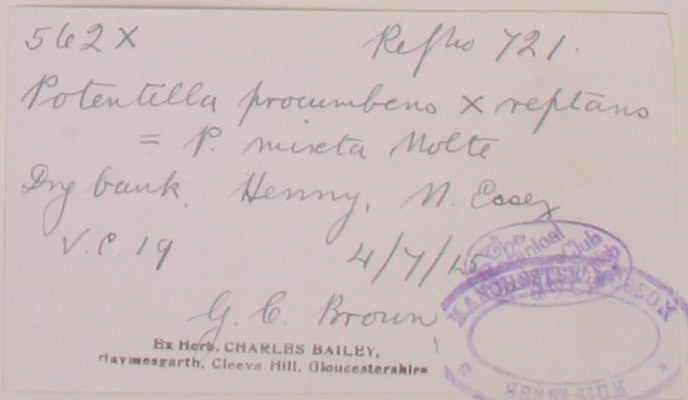 562 X Ref No 721.
Potentilla procumbens X reptans
= P. mixta Nolte
Dry bank, Henny, N. Essex
V.C. 19 4/7/15
G. C. Brown
Ex Herb. CHARLES BAILEY,
Haymesgarth, Cleeve Hill, Gloucestershire
The
Botanical
Club
MANCHESTER
MUSEUM